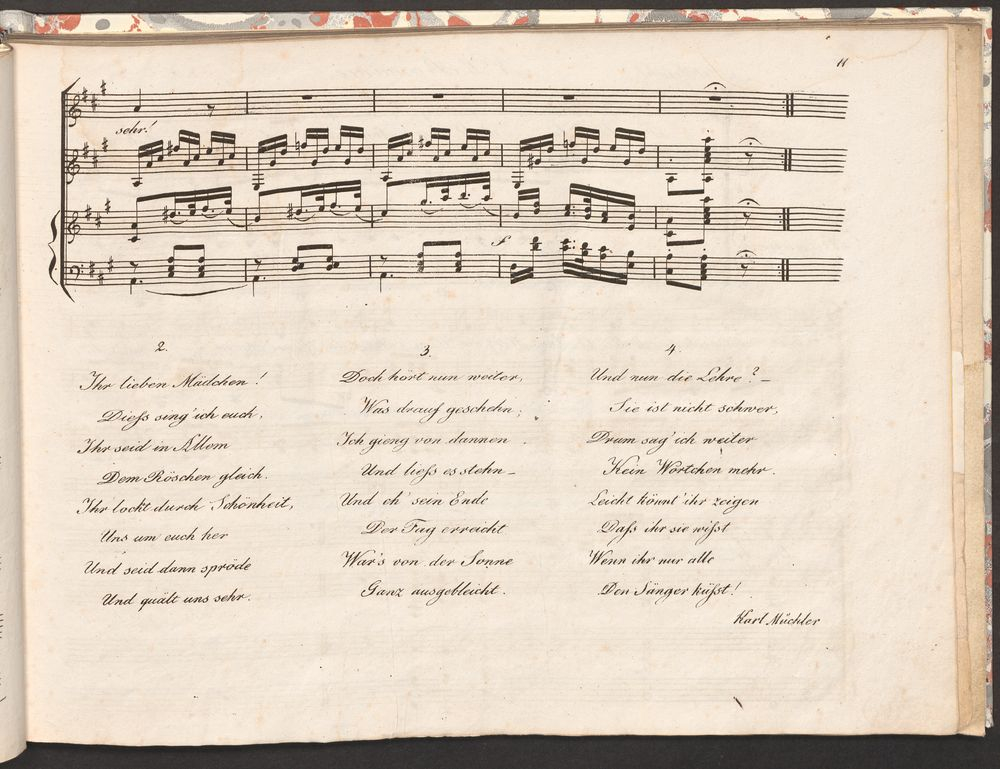 11
sehr!
f
2.
Ihr lieben Mädchen!
Diess sing' ich euch,
Ihr seid in Allem
Dem Röschen gleich.
Ihr lockt durch Schönheit,
Uns um euch her
Und seid dann spröde
Und quält uns sehr.
3.
Doch hört nun weiter,
Was drauf geschehn;
Ich gieng von dannen
Und liess es stehn_
Und eh' sein Ende
Der Tag erreicht
War's von der Sonne
Ganz ausgebleicht.
4.
Und nun die Lehre?_
Sie ist nicht schwer,
Drum sag' ich weiter
Kein Wörtchen mehr.
Leicht könnt' ihr zeigen
Dass ihr sie wisst
Wenn ihr nur alle
Den Sänger küsst!
Karl Müchler